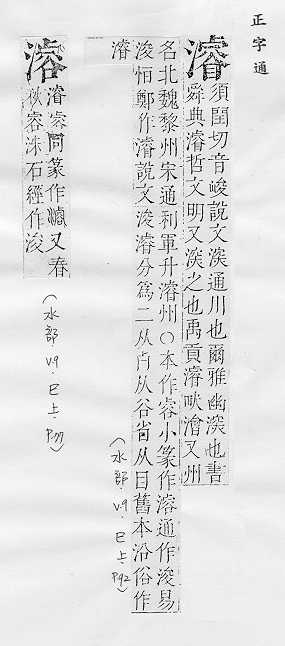 正字通
濬 須閏切音峻說文深通川也爾雅幽深也書
舜典濬哲文明又深之也禹貢濬畎澮又州
名北魏黎州宋通利軍升濬州○本作睿小篆作濬通作浚易
浚恒鄭作濬說文浚濬分爲二从𣦵从谷㕡从目舊本沿俗作
濬
(水部.V9.巳上.P92)
溶 濬睿同篆作濬又春
秋容洙石經作浚
(水部.V9.巳上.P77)